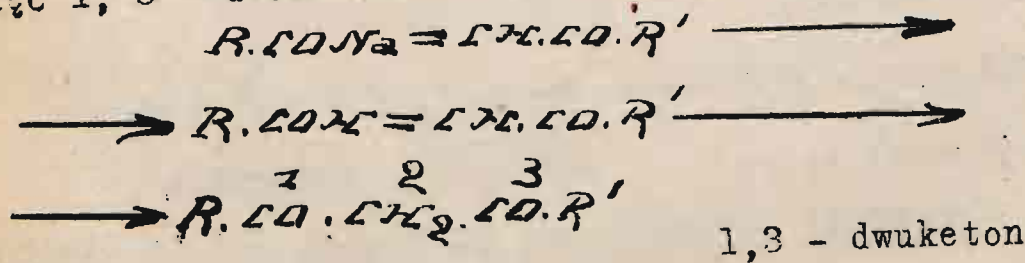 1, 3 -
R.CONa = CH.CO.R' →
→ R.COH = CH.CO.R' →
1 2 3
→ R.CO.CH₂.CO.R'
1,3 - dwuketon